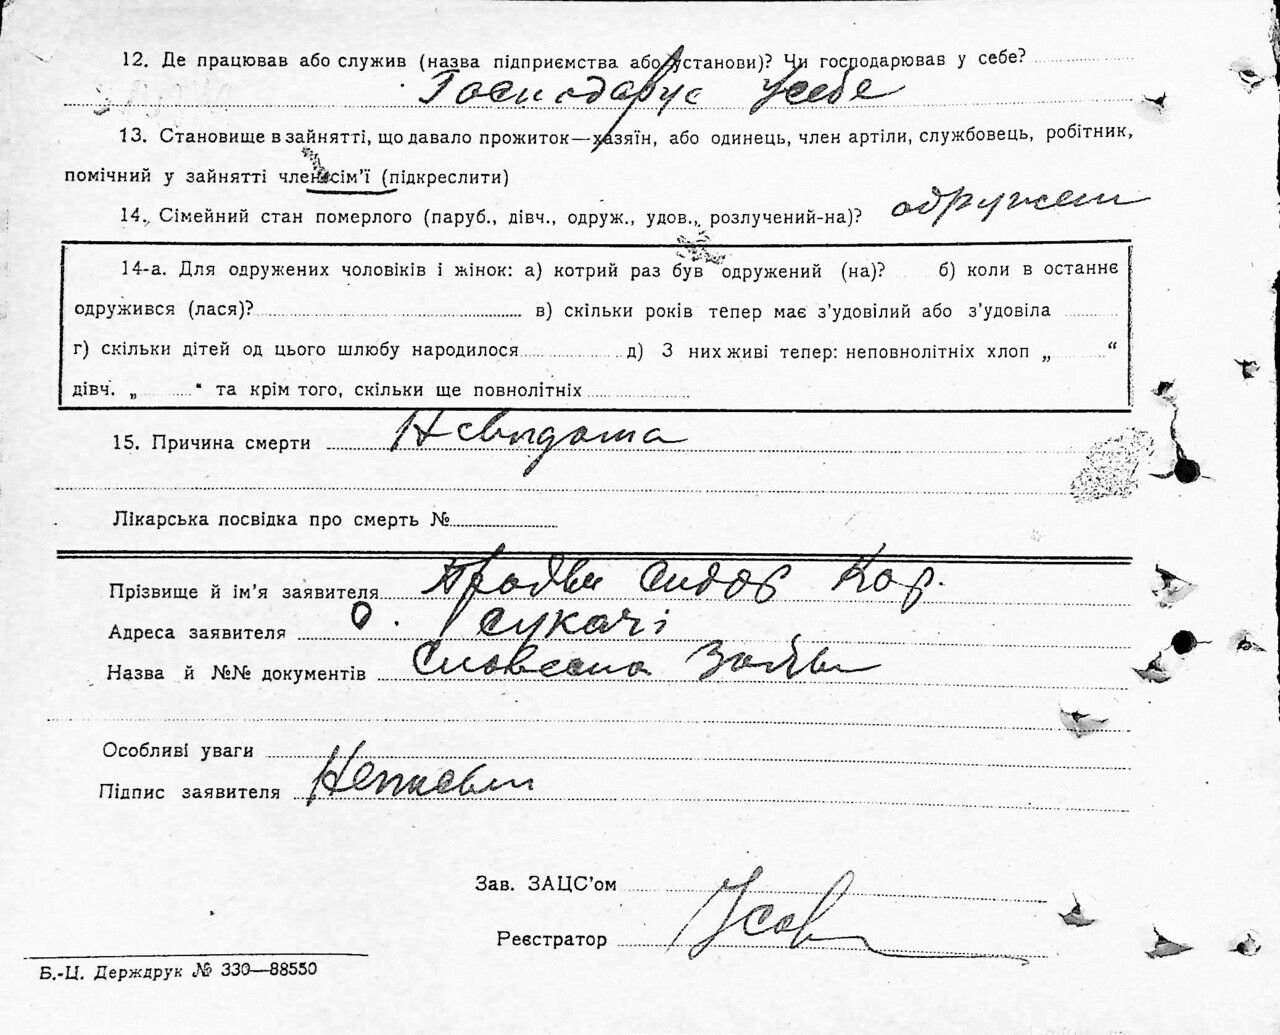 12. Де працював або служив (назва підприємства або установи)? Чи господарював у себе?
Господарує У себе
13. Становище в зайнятті, що давало прожиток—хазяїн, або одинець, член артіли, службовець, робітник,
помічний у зайнятті член сім'ї (підкреслити)
14. Сімейний стан померлого (паруб., дівч., одруж., удов., розлучений-на)? одружен
14-а. Для одружених чоловіків і жінок: а) котрий раз був одружений (на)? б) коли в останнє
одружився (лася)? в) скільки років тепер має з'удовілий або з'удовіла
г) скільки дітей од цього шлюбу народилося д) З них живі тепер: неповнолітніх хлоп „ “
дівч. „ “ та крім того, скільки ще повнолітніх
15. Причина смерти Невидома
Лікарська посвідка про смерть №
Прізвище й ім'я заявителя Сидор Кор.
Адреса заявителя О. Сукачі
Назва й №№ документів Словесна
Особливі уваги
Підпис заявителя
Зав. ЗАЦС'ом
Реєстратор
Б.-Ц. Держдрук № 330—88550